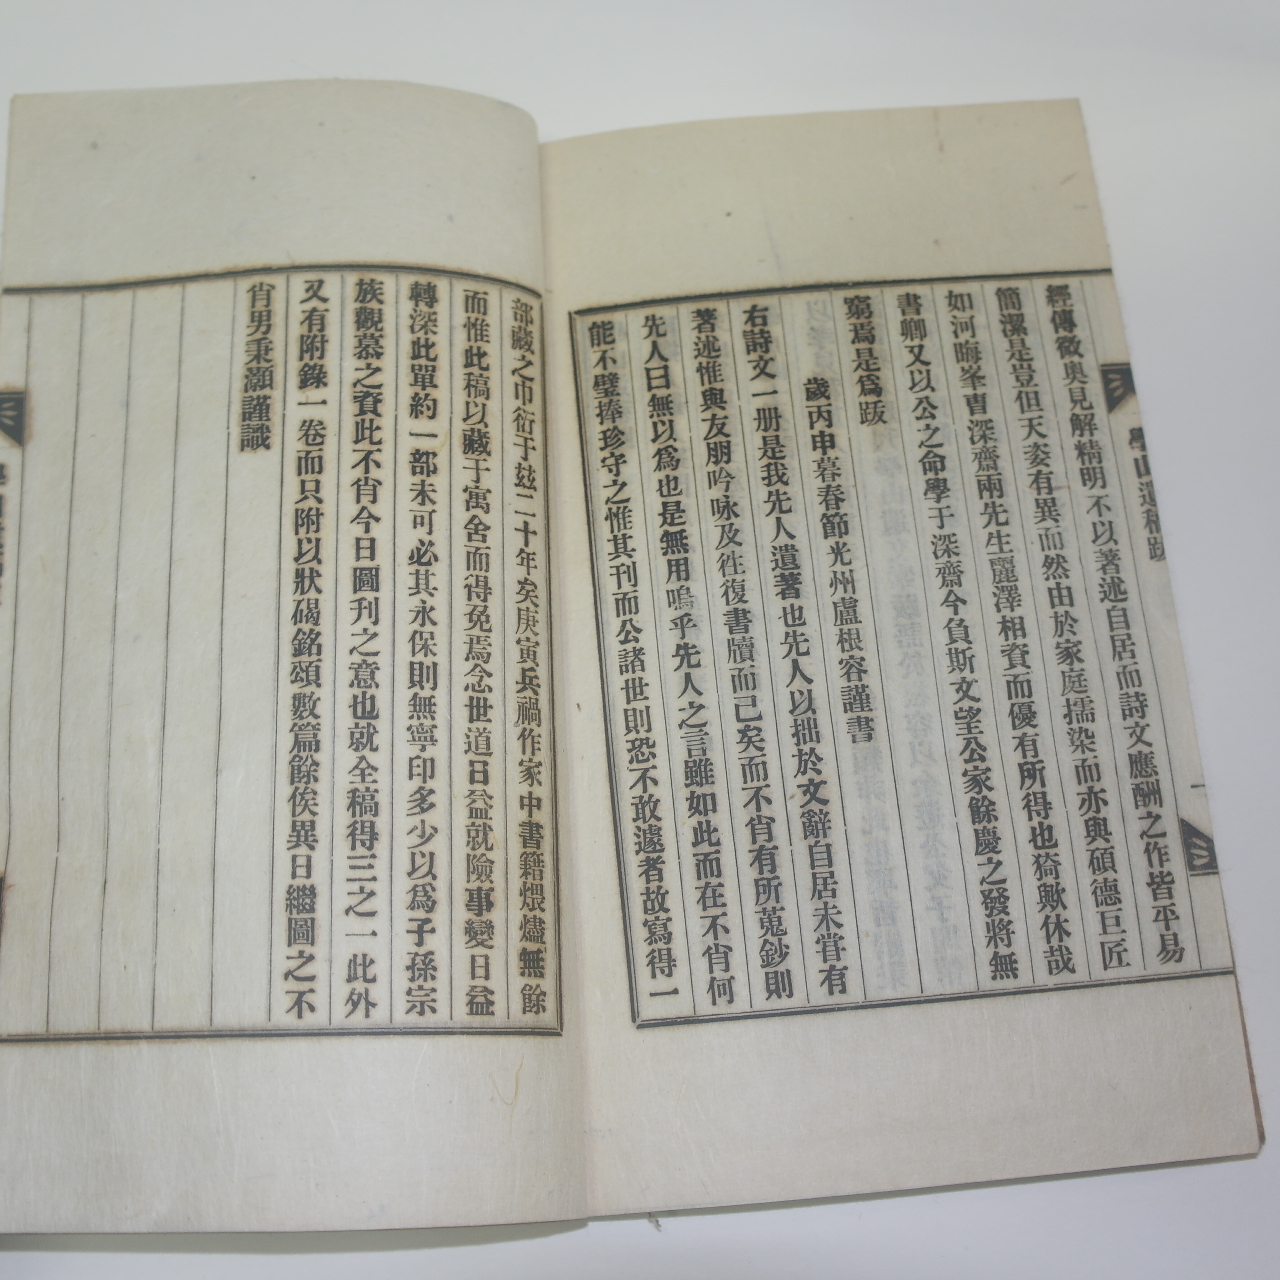 學山遺稿跋
一
經傳微奧見解精明不以著述自居而詩文應酬之作皆平易
簡潔是豈但天姿有異而然由於家庭擩染而亦與碩德巨匠
如河晦峯曺深齋兩先生麗澤相資而優有所得也猗歟休哉
書卿又以公之命學于深齋今負斯文望公家餘慶之發將無
窮焉是爲跋
歲丙申暮春節光州盧根容謹書
右詩文一册是我先人遺著也先人以拙於文辭自居未甞有
著述惟與友朋吟咏及徃復書牘而已矣而不肖有所蒐鈔則
先人曰無以爲也是無用嗚乎先人之言雖如此而在不肖何
能不璧捧珍守之惟其刊而公諸世則恐不敢遽者故寫得一
部藏之巾衍于玆二十年矣庚寅兵禍作家中書籍煨燼無餘
而惟此稿以藏于寓舍而得免焉念世道日益就險事變日益
轉深此單約一部未可必其永保則無寧印多少以爲子孫宗
族觀慕之資此不肖今日圖刊之意也就全稿得三之一此外
又有附錄一卷而只附以狀碣銘頌數篇餘俟異日繼圖之不
肖男秉灝謹識